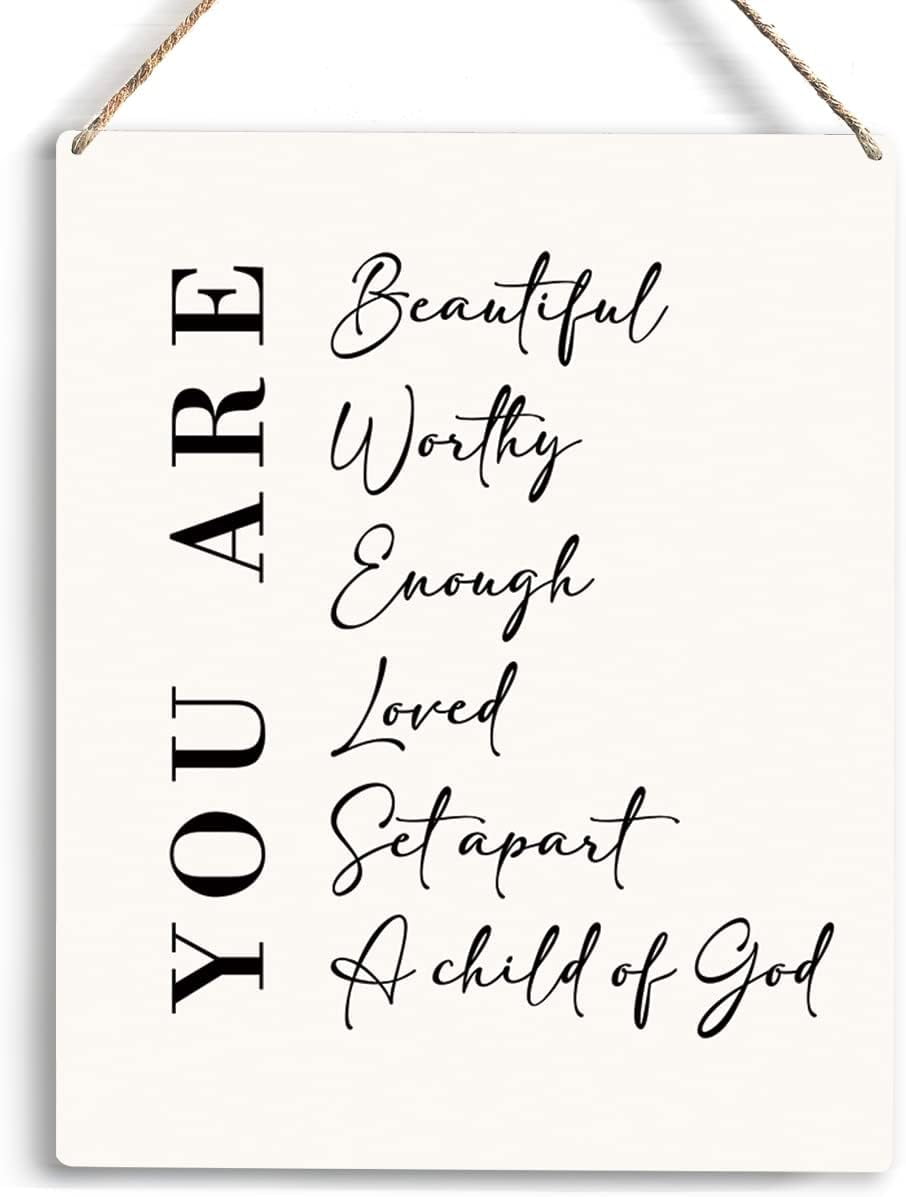 YOU ARE
Beautiful
Worthy
Enough
Loved
Set apart
A child of God